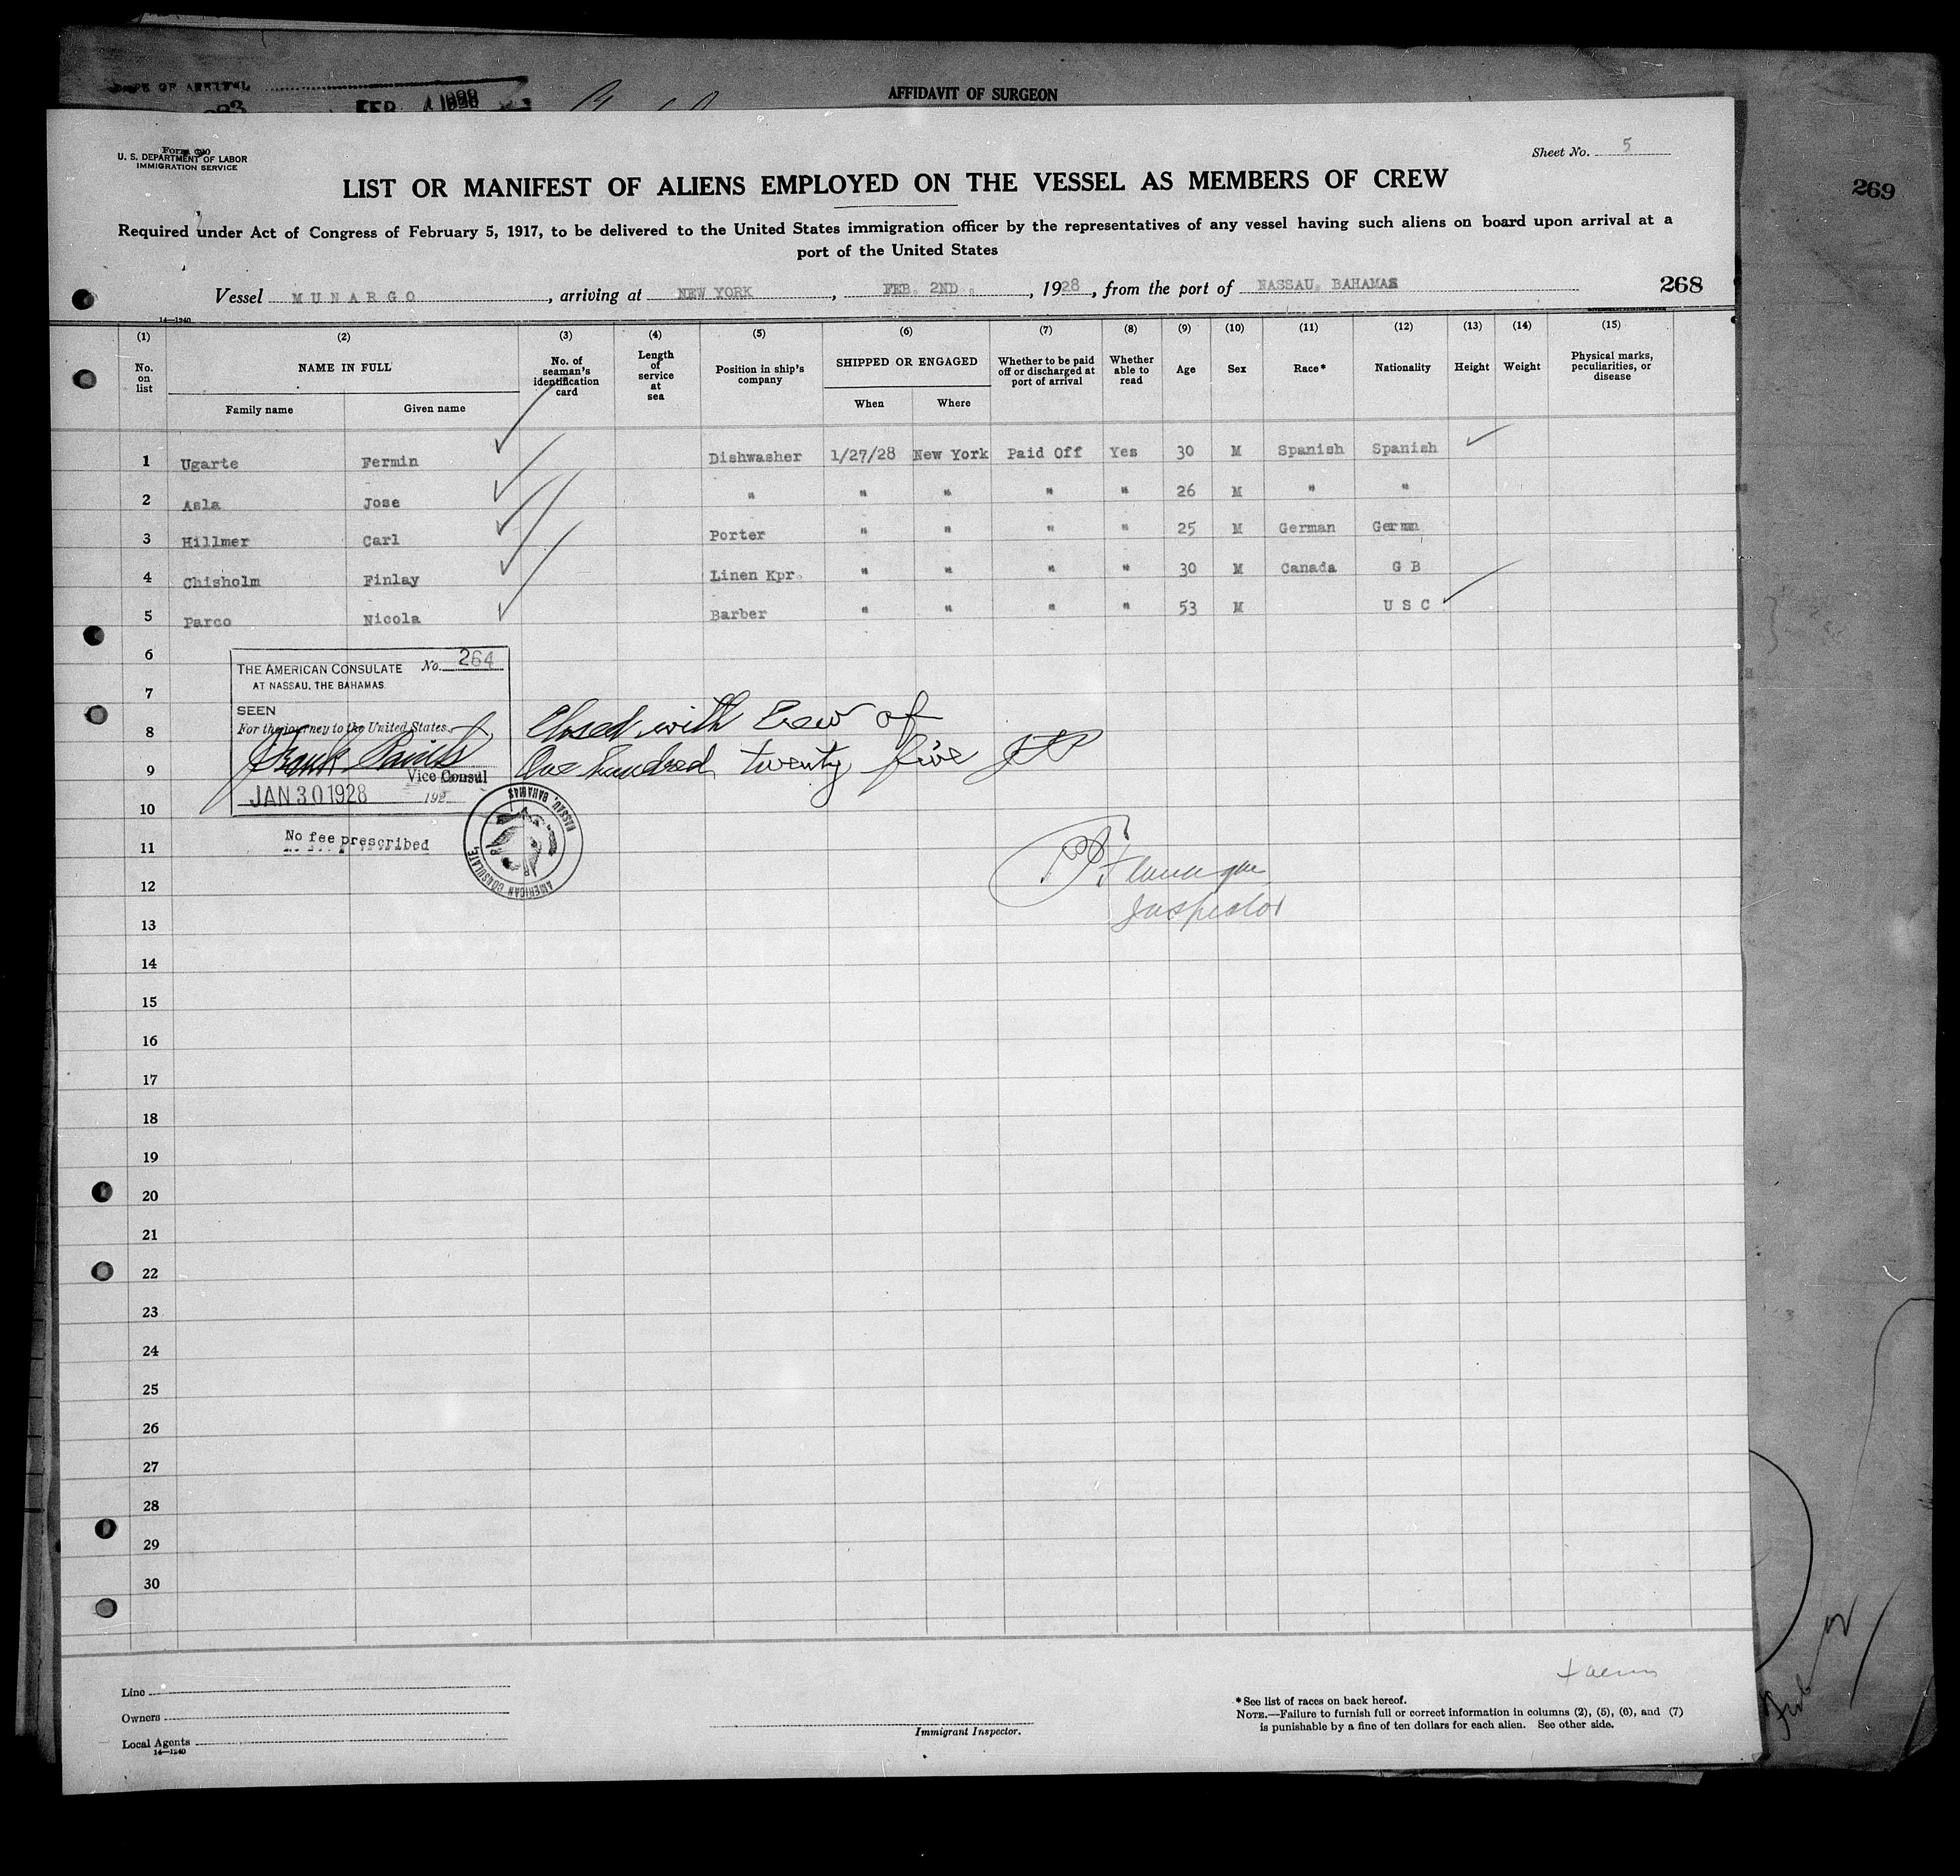 DATE OF ARRIVAL
FEB
AFFIDAVIT OF SURGEON
269
U. S. DEPARTMENT OF LABOR
IMMIGRATION SERVICE
Sheet No. 5
LIST OR MANIFEST OF ALIENS EMPLOYED ON THE VESSEL AS MEMBERS OF CREW
Required under Act of Congress of February 5, 1917, to be delivered to the United States immigration officer by the representatives of any vessel having such aliens on board upon arrival at a
port of the United States
Vessel MUNARGO, arriving at NEW YORK, FEB. 2ND., 1928, from the port of NASSAU. BAHAMAS 268
14—1240
(1) (2) (3) (4) (5) (6) (7) (8) (9) (10) (11) (12) (13) (14) (15)
No. on list NAME IN FULL Family name Given name No. of seaman's identification card Length of service at sea Position in ship's company SHIPPED OR ENGAGED When Where Whether to be paid off or discharged at port of arrival Whether able to read Age Sex Race* Nationality Height Weight Physical marks, peculiarities, or disease
1 Ugarte Fermin Dishwasher 1/27/28 New York Paid Off Yes 30 M Spanish Spanish
2 Asla Jose " " " " " 26 M " "
3 Hillmer Carl Porter " " " " 25 M German German
4 Chisholm Finlay Linen Kpr. " " " " 30 M Canada G B
5 Parco Nicola Barber " " " " 53 M U S C
6
7
8
9
10
11
12
13
14
15
16
17
18
19
20
21
22
23
24
25
26
27
28
29
30
THE AMERICAN CONSULATE No. 264
AT NASSAU, THE BAHAMAS
SEEN
For the journey to the United States
Vice Consul
JAN 30 1928 192
No fee prescribed
AMERICAN CONSULATE, NASSAU, BAHAMAS
Closed with Crew of
One hundred twenty five
Flanagan
Inspector
Line
Owners
Local Agents
14—1240
Immigrant Inspector.
* See list of races on back hereof.
NOTE.—Failure to furnish full or correct information in columns (2), (5), (6), and (7)
is punishable by a fine of ten dollars for each alien. See other side.